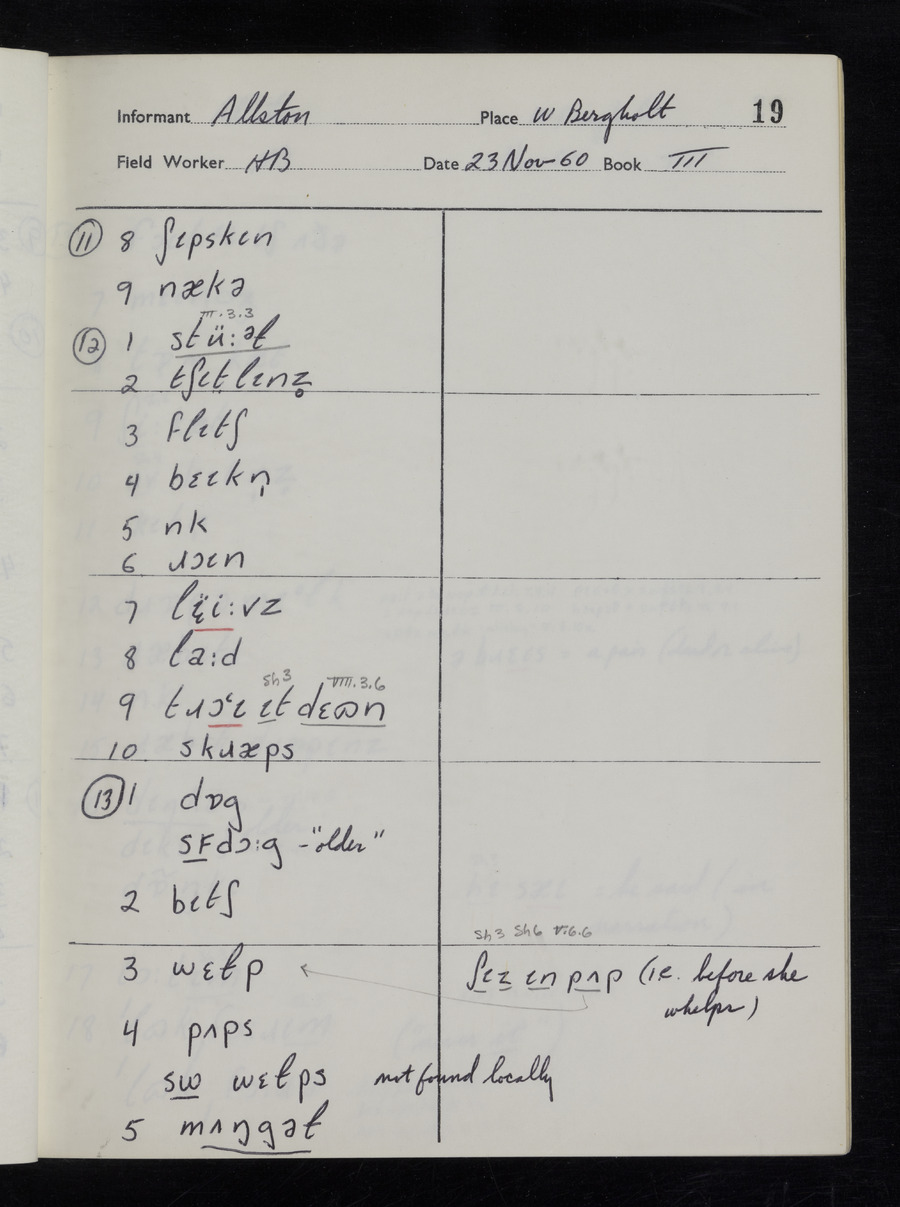 Informant Allston Place W Bergholt 19
Field Worker HB Date 23 Nov 60 Book III
⑪ 8 ʃɪpskɪn
9 nækə
III.3.3
⑫ 1 stü:əɫ
2 tʃɪt̩lɪnz̥
3 flɪtʃ
4 bɛɪkn̩
5 nk
6 ɹɔɪn
7 lɪ̈i:vz
8 la:d
sh3 VIII.3.6
9 tɹɔˑɪ ɪt dɛʊn
10 skɹæps
⑬ 1 dɒg
SF dɔ:g - "older"
2 bɪtʃ
sh3 sh6 VI.6.6
3 wɛɫp ʃɪz ɪn pʌp (i.e. before she
whelps)
4 pʌps
sw wɛɫps not found locally
5 mʌŋgəɫ